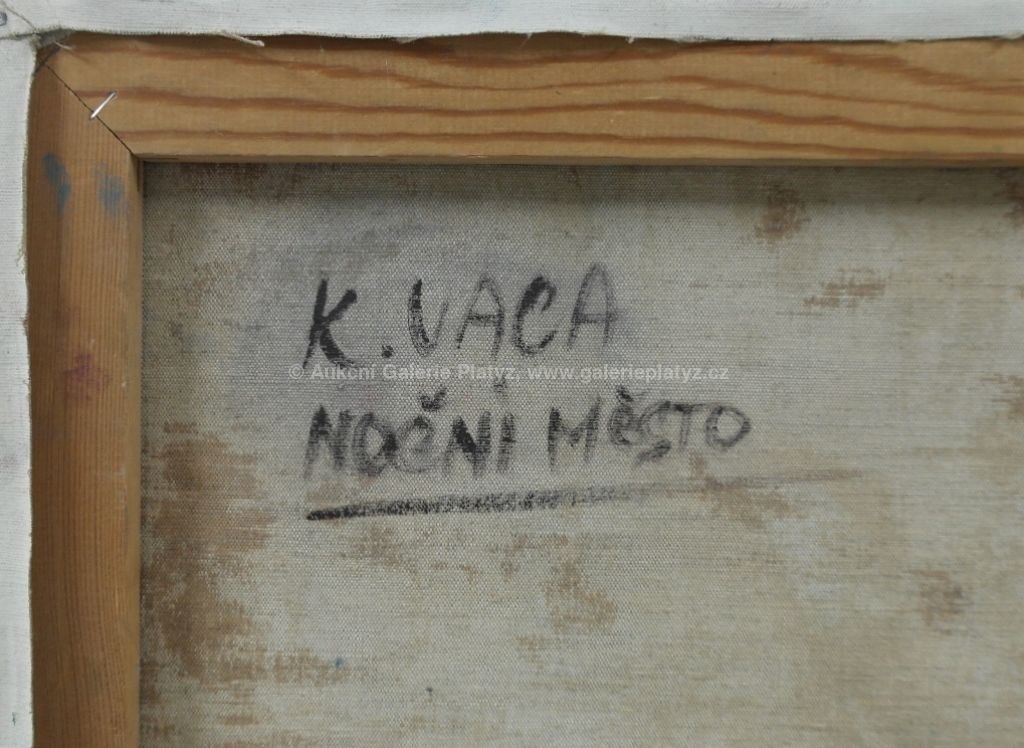 K. VACA
© Aukční Galerie Platýz, www.galerieplatyz.cz
NOČNÍ MĚSTO